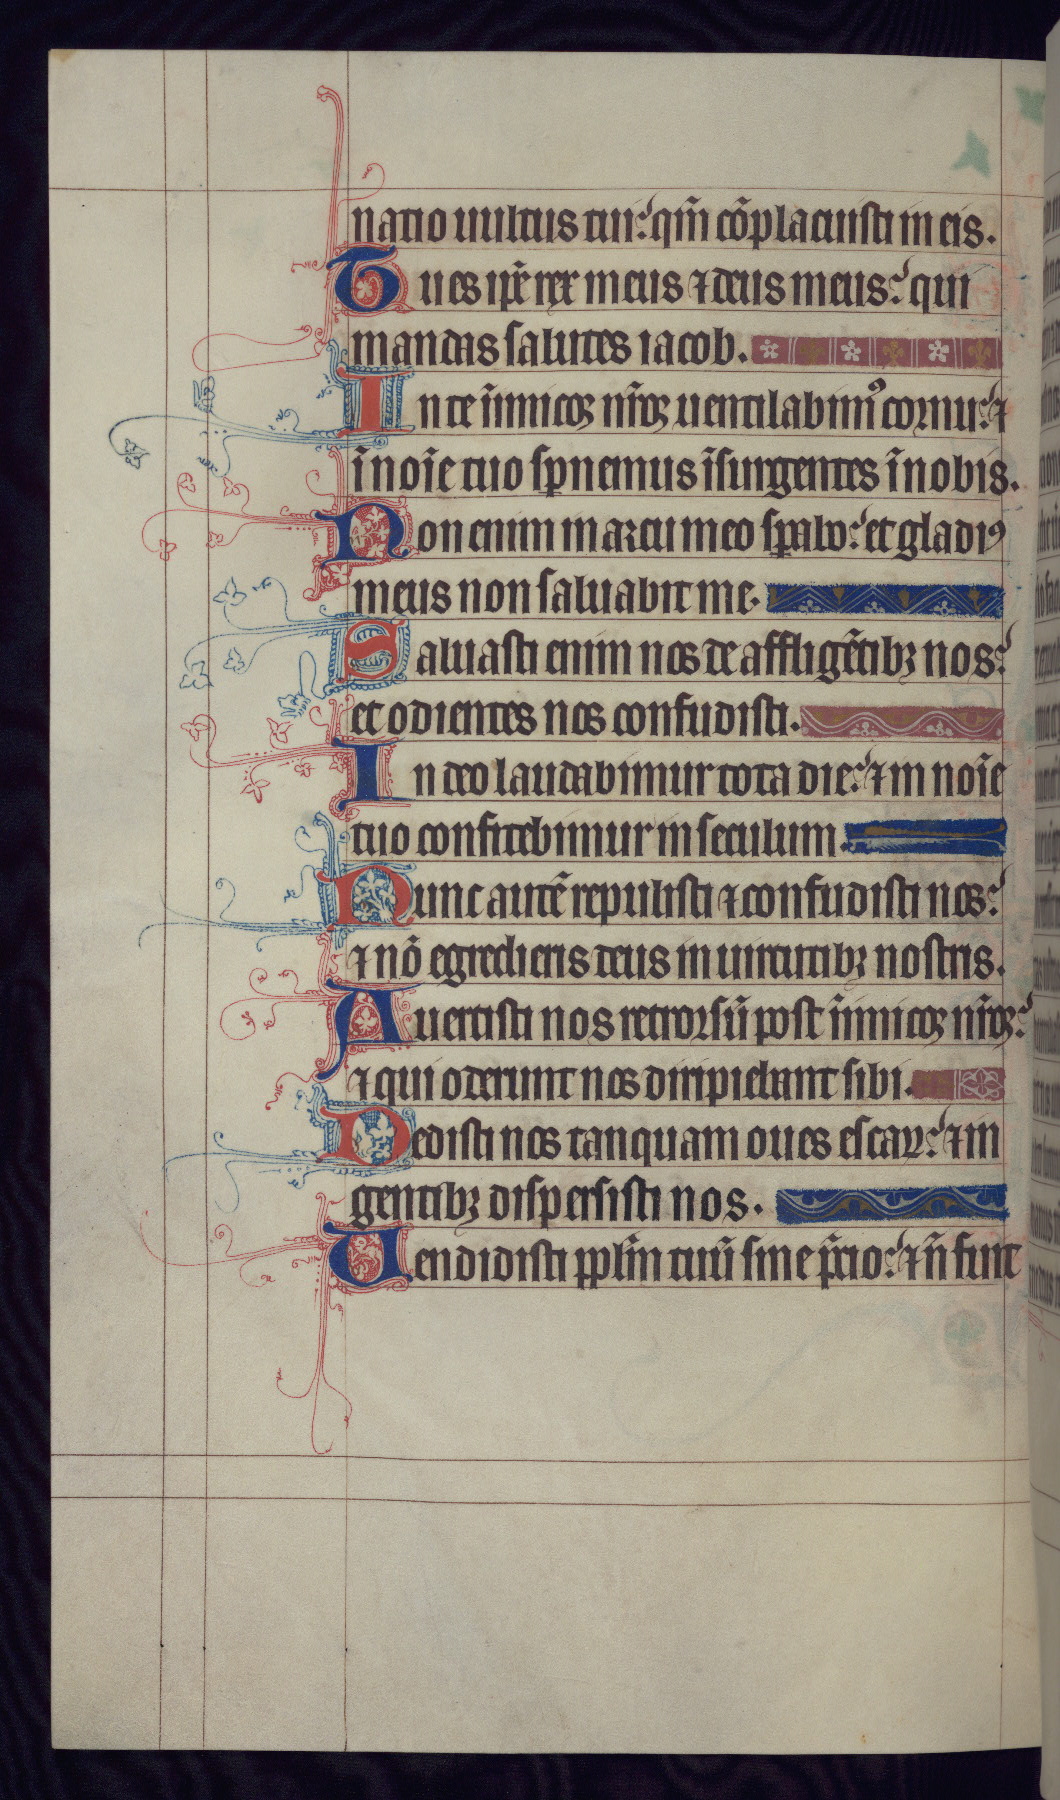 natio uultus tui: qm̄ cōplacuisti in eis.
Tu es ip̄e rex meus ⁊ deus meus: qui
mandas salutes iacob.
In te īimicoꝝ nr̄oꝝ uentilabimꝰ cornu: ⁊
ī noīe tuo spnemus īsurgentes ī nobis.
Non enim in arcu meo sꝑabo: et gladiꝰ
meus non saluabit me.
Saluasti enim nos de affligētibꝫ nos:
et odientes nos confudisti.
In deo laudabimur tota die: ⁊ in noīe
tuo confitebimur in seculum.
Nunc autē repulisti ⁊ confudisti nos:
⁊ nō egredieris deus in uirtutibꝫ nostris.
Auertisti nos retrorsū post īimicoꝝ nr̄oꝝ:
⁊ qui oderunt nos diripiebant sibi.
Dedisti nos tanquam oues escaꝝ: ⁊ in
gentibꝫ dispersisti nos.
Uendidisti pplm̄ tuū sine p̄cio: ⁊ n̄ fuit